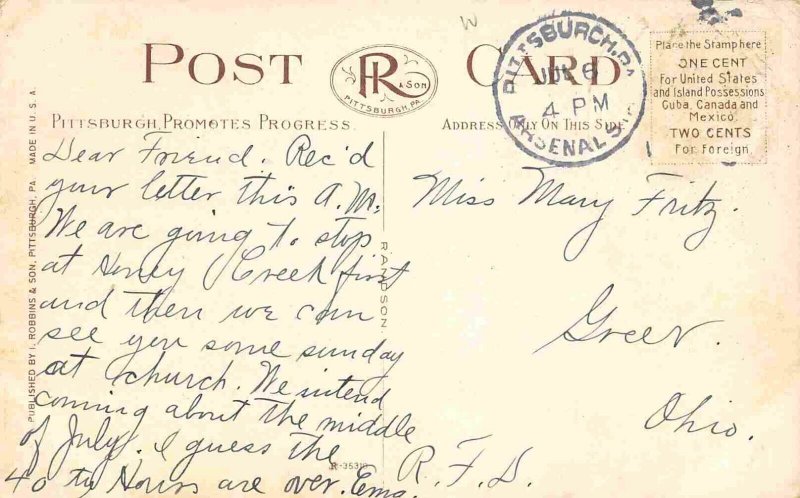 POST CARD
R & SON
PITTSBURGH, PA.
PITTSBURGH, PROMOTES PROGRESS.
ADDRESS ONLY ON THIS SIDE
PITTSBURGH, PA
JUL 6
4 PM
ARSENAL STA
Place the Stamp here
ONE CENT
For United States
and Island Possessions
Cuba, Canada and
Mexico
TWO CENTS
For Foreign.
PUBLISHED BY I. ROBBINS & SON, PITTSBURGH, PA. MADE IN U.S.A.
Dear Friend. Rec'd
your letter this A.M.
We are going to stop
at Honey Creek first
and then we can
see you some sunday
at church. We intend
coming about the middle
of July. I guess the
40 Hours are over. Emg.
RANDSON
R-35310
Miss Mary Fritz.
Greer.
Ohio.
R. F. D.